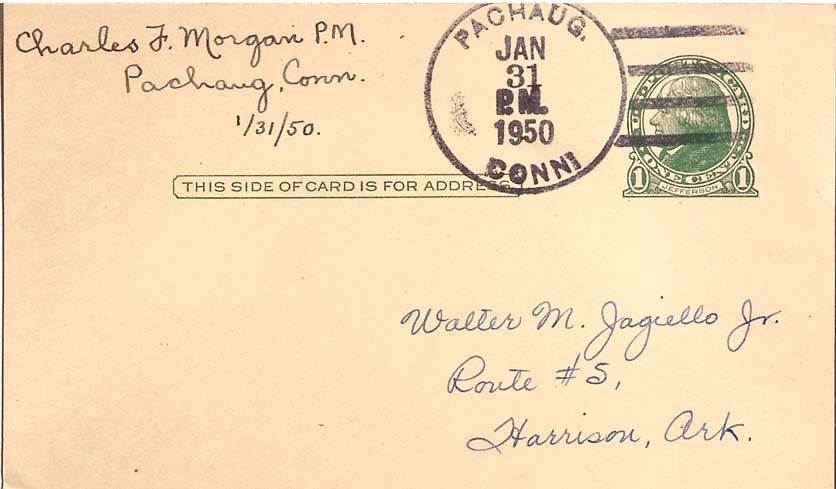 Charles F. Morgan P.M.
Pachaug, Conn.
1/31/50.
PACHAUG,
JAN
31
P.M.
1950
CONN
THIS SIDE OF CARD IS FOR ADDRESS
1 JEFFERSON 1
Walter M. Jagiello Jr.
Route #5,
Harrison, Ark.